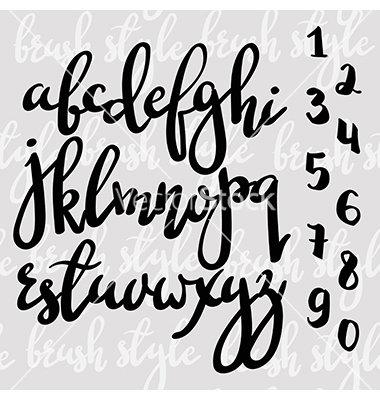 brush style brush style
abcdefghi
jklmnopq
rstuvwxyz
1
2
3
4
5
6
7
8
9
0
VectorStock
brush style
brush style